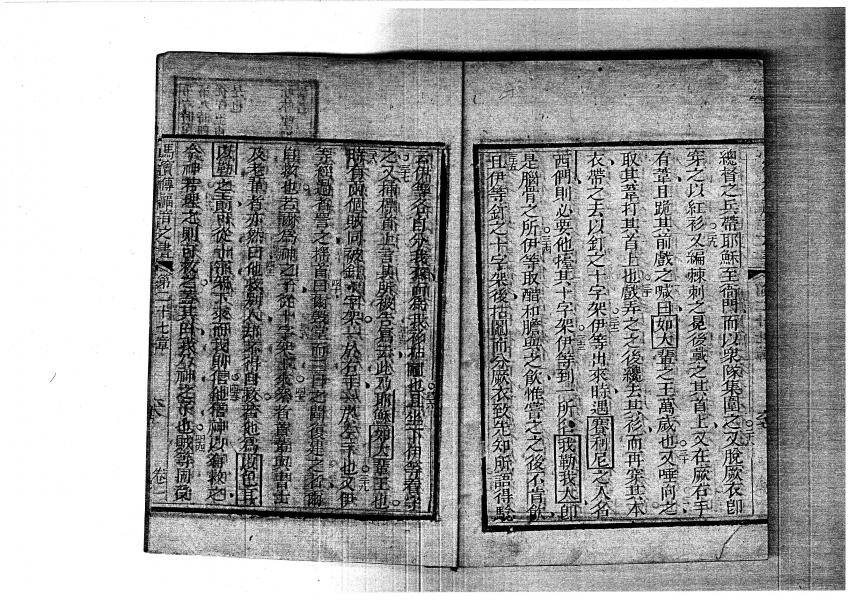 總督之兵帶耶穌至衙門而以衆隊集圍之又脫厥衣卽
穿之以紅衫又編棘刺之冕後戴之其首上又在厥右手
有葦且跪其前戲之喊曰如大輩之王萬歲也又唾向之
取其葦打其首上也戲弄之之後纔去其衫而再穿其本
衣帶之去以釘之十字架伊等出來時遇賽利尼之人名
西們則必要他擡其十字架伊等到一所名我勒我大卽
是腦骨之所伊等取醋和膽與之飲惟嘗之之後不肯飲
且伊等釘之十字架後拈鬮而分厥衣致先知所語得驗
云伊等各自分我衣而爲我衫拈鬮也且坐下伊等看守
之又補標首上言其所被告爲云此乃耶穌如大輩王也
時有兩個賊同被釘十字架一於右手一於左手也又伊
等經過者詈之搖首曰爾毀堂而三日之間復建之者爾
自救也若爾爲神之子從十字架下來
及老輩者亦然曰他救別人却不得自救若他爲以色耳
以勒之王可從十字架下來而我則信他他信神以
今神若理之則可救之蓋其曰我乃神之子也賊等同
馬竇傳福音之書 第二十七章 卷一